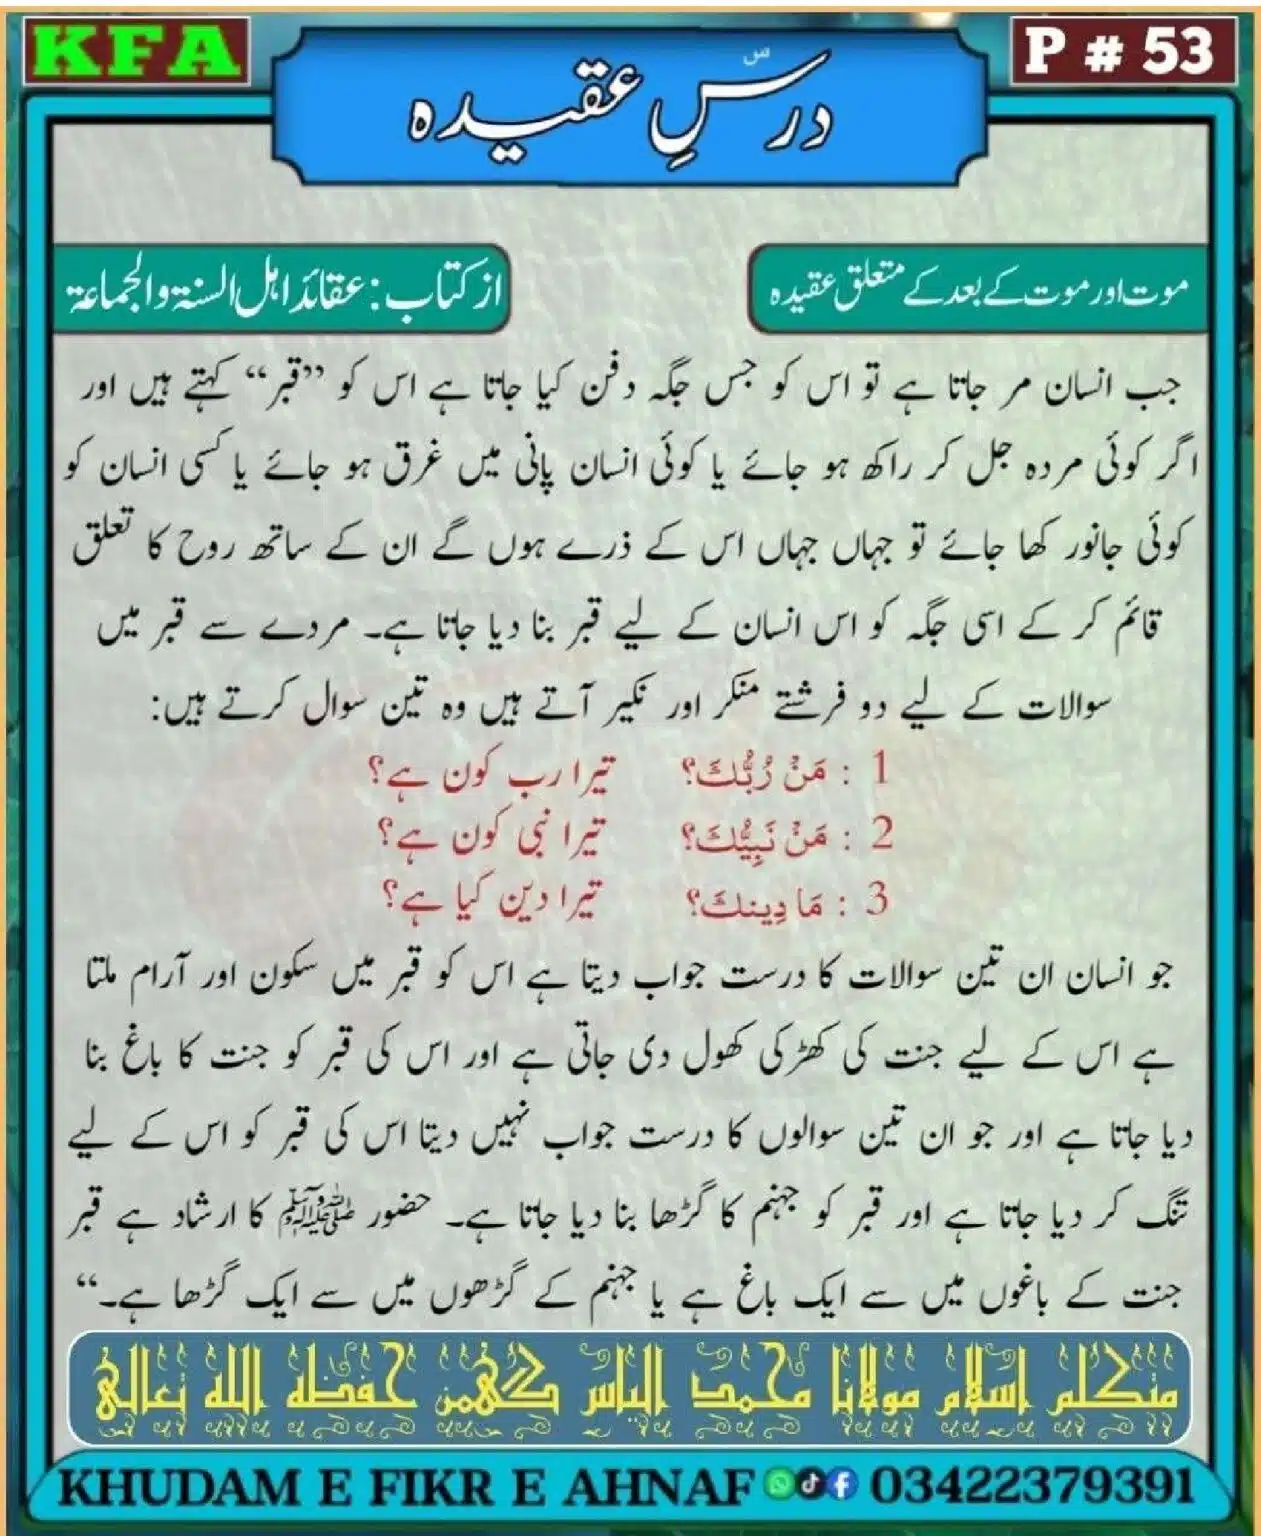 KFA
P # 53
درسِ عقیدہ
موت اور موت کے بعد کے متعلق عقیدہ
از کتاب: عقائد اہل السنۃ والجماعۃ
جب انسان مر جاتا ہے تو اس کو جس جگہ دفن کیا جاتا ہے اس کو ”قبر“ کہتے ہیں اور
اگر کوئی مردہ جل کر راکھ ہو جائے یا کوئی انسان پانی میں غرق ہو جائے یا کسی انسان کو
کوئی جانور کھا جائے تو جہاں جہاں اس کے ذرے ہوں گے ان کے ساتھ روح کا تعلق
قائم کر کے اسی جگہ کو اس انسان کے لیے قبر بنا دیا جاتا ہے۔ مردے سے قبر میں
سوالات کے لیے دو فرشتے منکر اور نکیر آتے ہیں وہ تین سوال کرتے ہیں:
1 : مَنْ رُبُّكَ؟ تیرا رب کون ہے؟
2 : مَنْ نَبِيُّكَ؟ تیرا نبی کون ہے؟
3 : مَا دِينكَ؟ تیرا دین کیا ہے؟
جو انسان ان تین سوالات کا درست جواب دیتا ہے اس کو قبر میں سکون اور آرام ملتا
ہے اس کے لیے جنت کی کھڑکی کھول دی جاتی ہے اور اس کی قبر کو جنت کا باغ بنا
دیا جاتا ہے اور جو ان تین سوالوں کا درست جواب نہیں دیتا اس کی قبر کو اس کے لیے
تنگ کر دیا جاتا ہے اور قبر کو جہنم کا گڑھا بنا دیا جاتا ہے۔ حضور ﷺ کا ارشاد ہے قبر
جنت کے باغوں میں سے ایک باغ ہے یا جہنم کے گڑھوں میں سے ایک گڑھا ہے۔“
متکلم اسلام مولانا محمد الیاس گھمن حفظہ اللہ تعالیٰ
KHUDAM E FIKR E AHNAF 03422379391